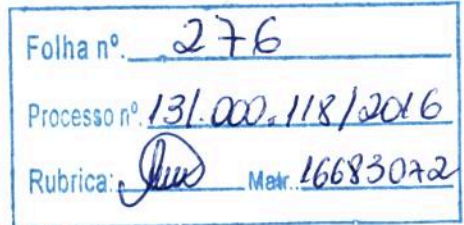 Folha nº. 276
Processo nº. 131.000.118/2016
Rubrica: Matr.. 16683072